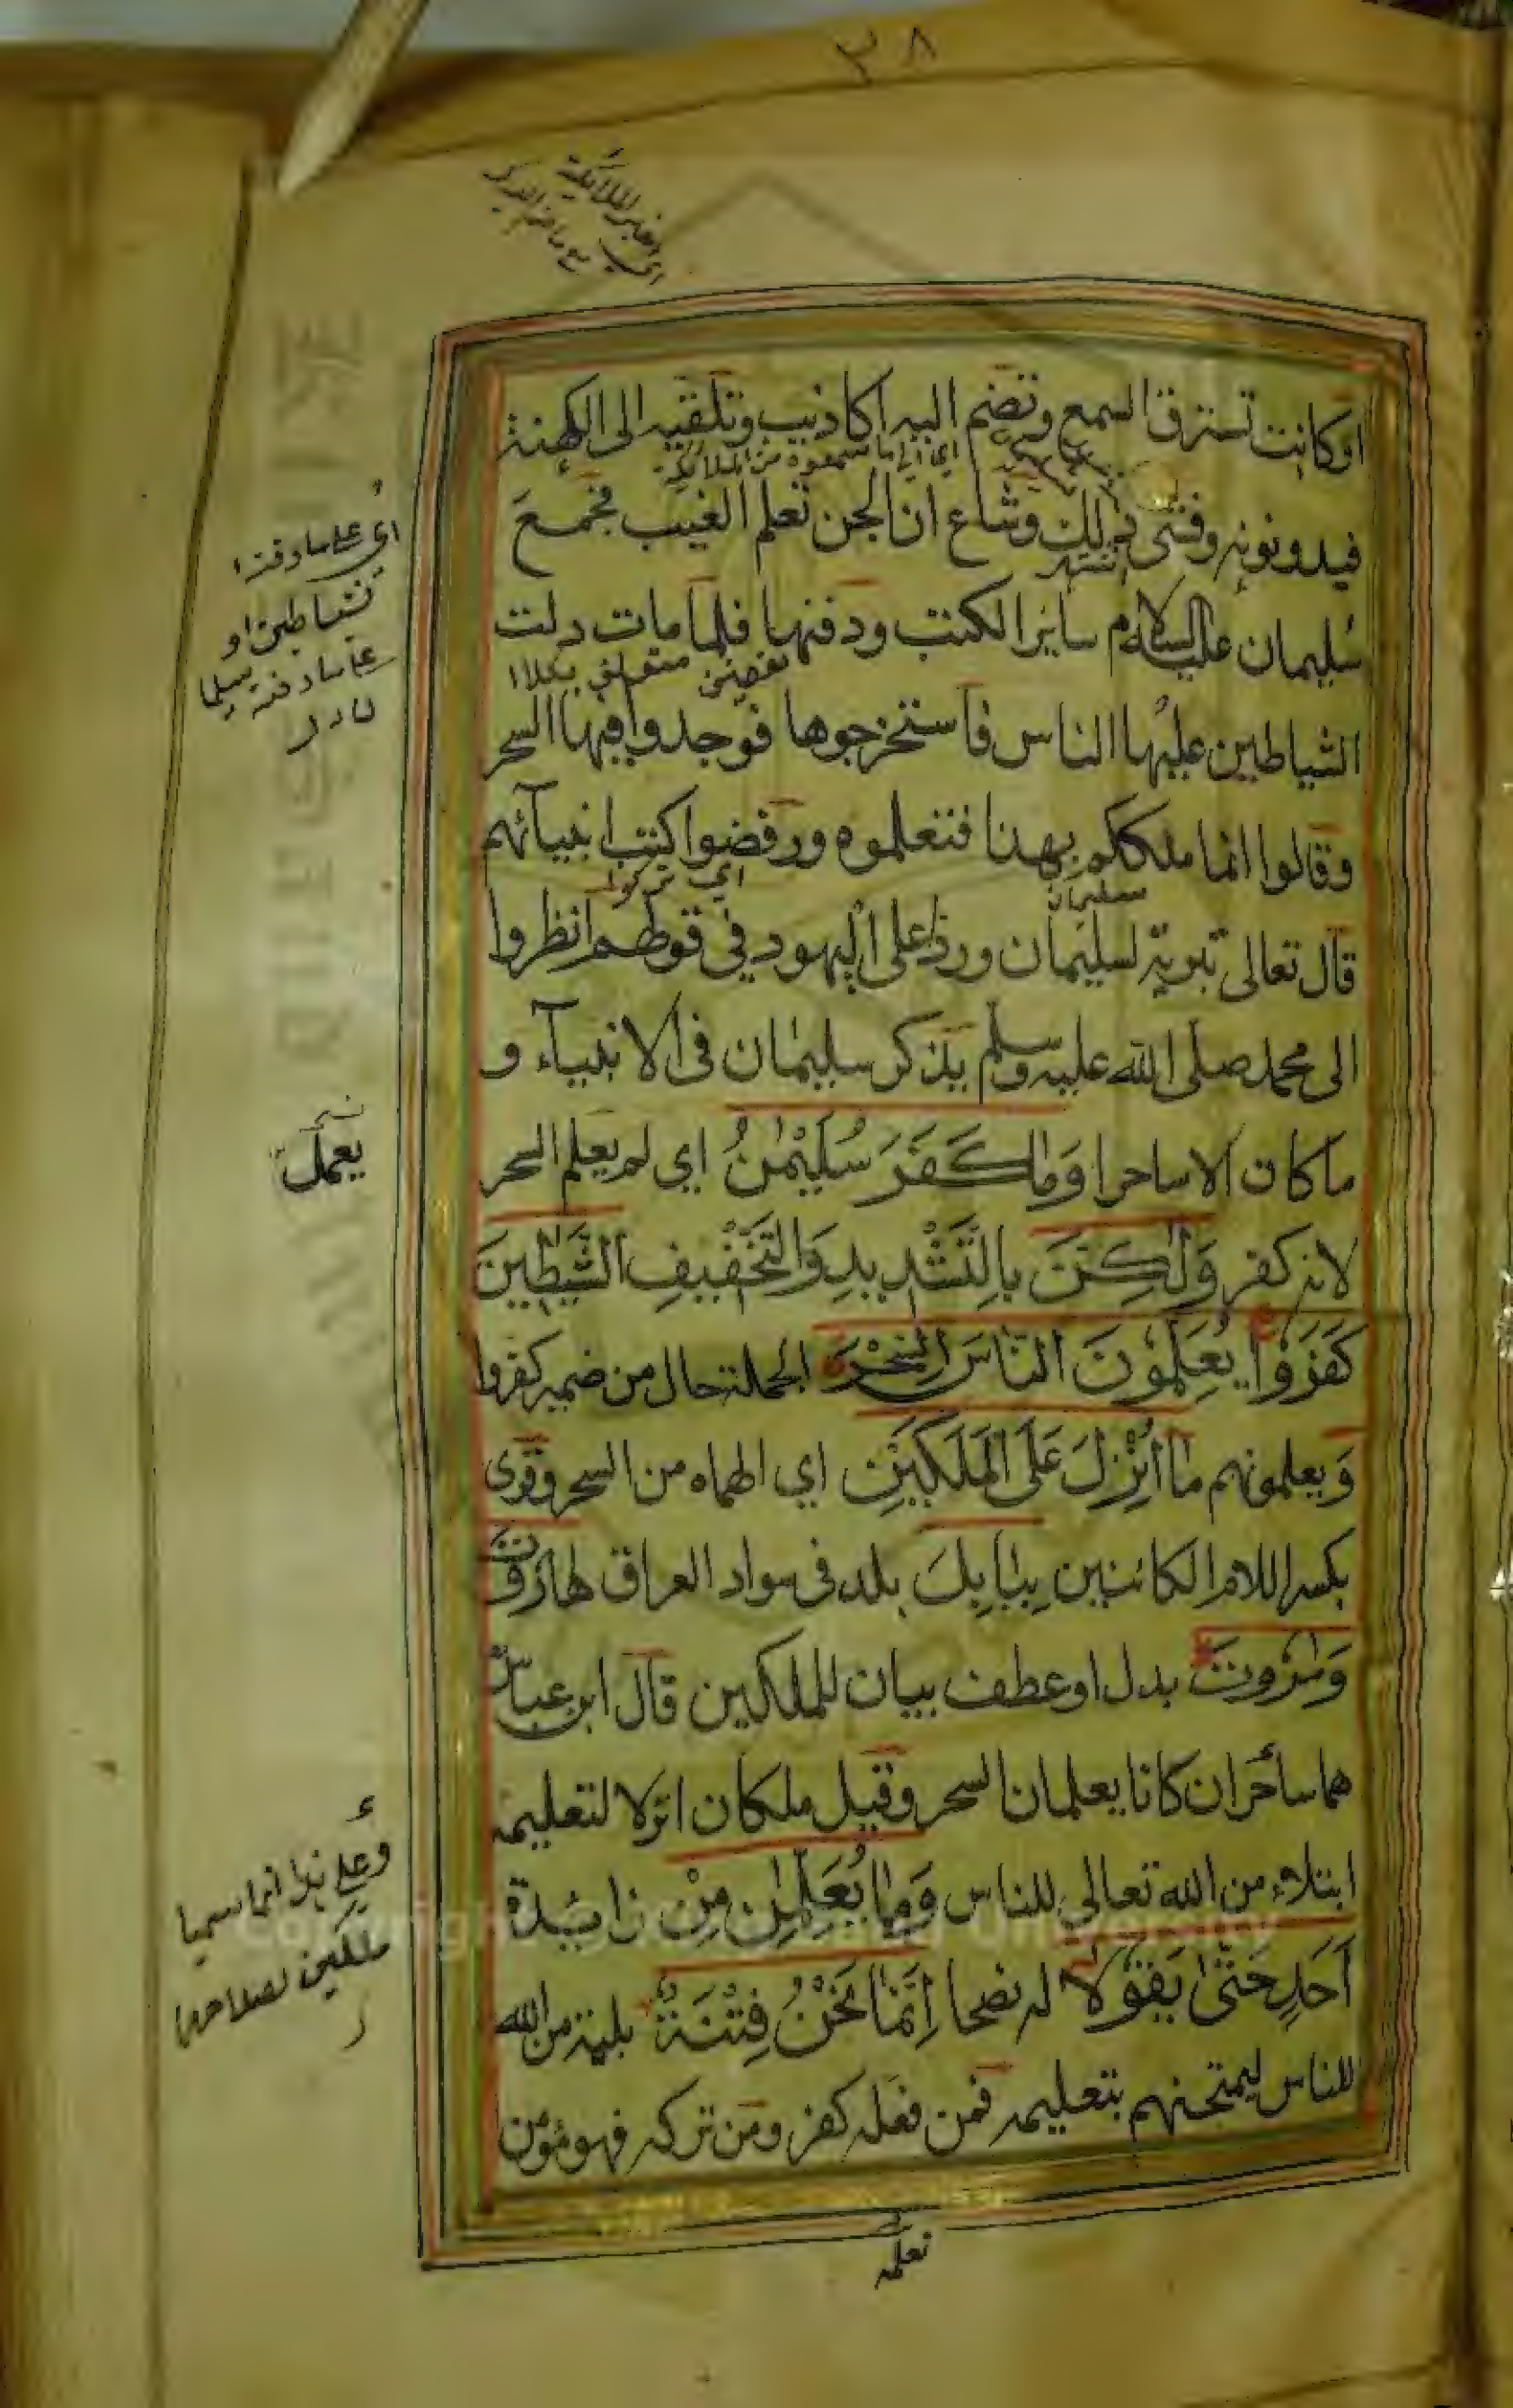 ٣٨
او كانت تسترق السمع وتضم اليه اكاذيب وتلقيه الى الكهنة
اي الى ما سمعوه من الملائكة
فيدونونه وفشى ذلك وشاع ان الجن تعلم الغيب فجمع
سليمان عليه السلام سائر الكتب ودفنها فلما مات دلت
الشياطين عليها الناس فاستخرجوها فوجدوا فيها السحر
وقالوا انما ملككم بهذا فتعلموه ورفضوا كتب انبيآئهم
اي تركوا
سليمان
قال تعالى تبرية لسليمان وردا على اليهود في قولهم انظروا
الى محمد صلى الله عليه وسلم يذكر سليمان فى الانبيآء و
ما كان الا ساحرا وَمَا كَفَرَ سُلَيْمٰنُ اي لم يعلم السحر
لانه كفر وَلٰكِنَّ بِالتَّشْدِيدِ وَالتَّخْفِيفِ الشَّيٰطِينَ
كَفَرُوا يُعَلِّمُونَ النَّاسَ السِّحْرَ الجملة حال من ضمير كفروا
وَيعلمونهم مَا أُنْزِلَ عَلَى الْمَلَكَيْنِ اي الهماه من السحر وقوى
بكسر اللام الكائنين بِبَابِلَ بلد فى سواد العراق هَارُوتَ
وَمٰرُوتَ بدل او عطف بيان للملكين قال ابن عباس
هما ساحران كانا يعلمان السحر وقيل ملكان انزلا لتعليمه
ابتلاء من الله تعالى للناس وَمَا يُعَلِّمٰنِ مِنْ زائدة
أَحَدٍ حَتّٰى يَقُولَا له نصحا إِنَّمَا نَحْنُ فِتْنَةٌ بلية من الله
للناس ليمتحنهم بتعليمه فمن فعله كفر ومن تركه فهو مؤمن
تعلمه
اي على ما دفنه
الشياطين او
على ما دفنه سليما
يعمل
وعلى هذا انما سميا
ملكين لصلاحهما